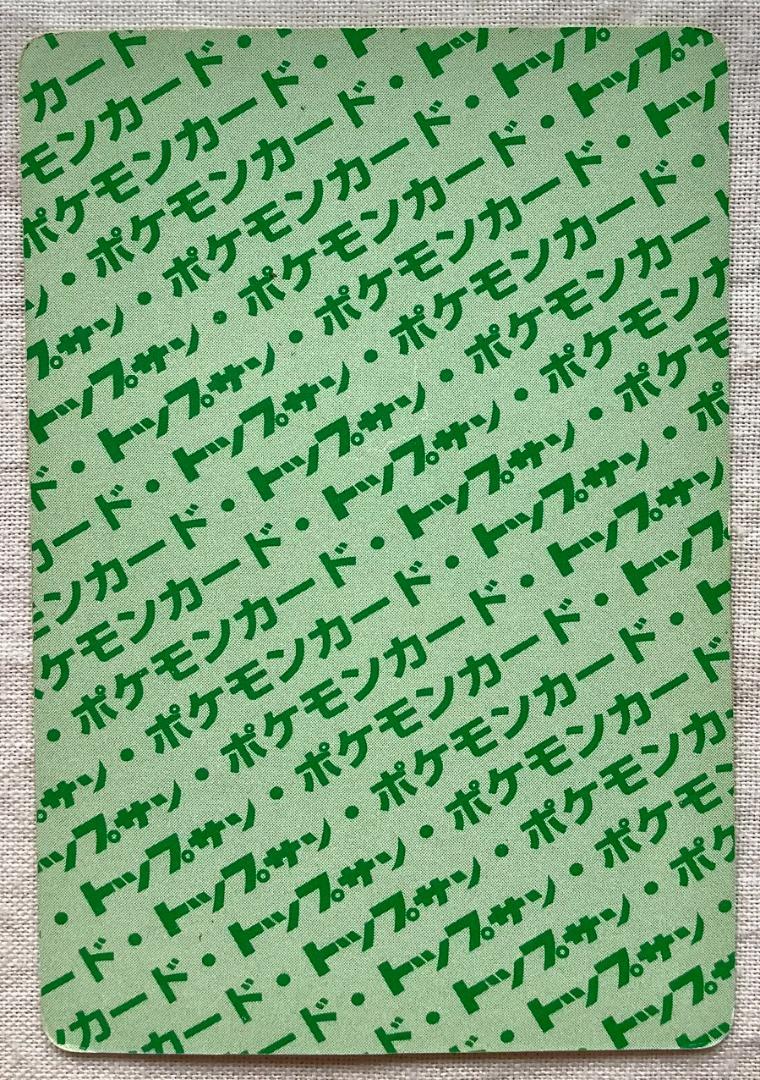 カード・
モンカード・ト
ポケモンカード・トッ
ン・ポケモンカード・トップ
プサン・ポケモンカード・トップサ
トップサン・ポケモンカード・トップ
ド・トップサン・ポケモンカード・
カード・トップサン・ポケモンカー
ンカード・トップサン・ポケモンカ
ケモンカード・トップサン・ポケモン
・ポケモンカード・トップサン・ポケモ
サン・ポケモンカード・トップサン・ポ
ップサン・ポケモンカード・トップサン
・トップサン・ポケモンカード・トップ
ード・トップサン・ポケモンカード・ト
カード・トップサン・ポケモンカード
カード・トップサン・ポケモンカ
ド・トップサン・ポケモ
ド・トップサン・ポ
・トップサン・
トップサ
ト